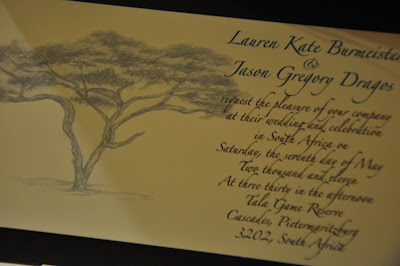 Lauren Kate Burmeister
&
Jason Gregory Dragos
request the pleasure of your company
at their wedding and celebration
in South Africa on
Saturday, the seventh day of May
Two thousand and eleven
At three thirty in the afternoon
Tala Game Reserve
Cascades, Pietermaritzburg
3202, South Africa